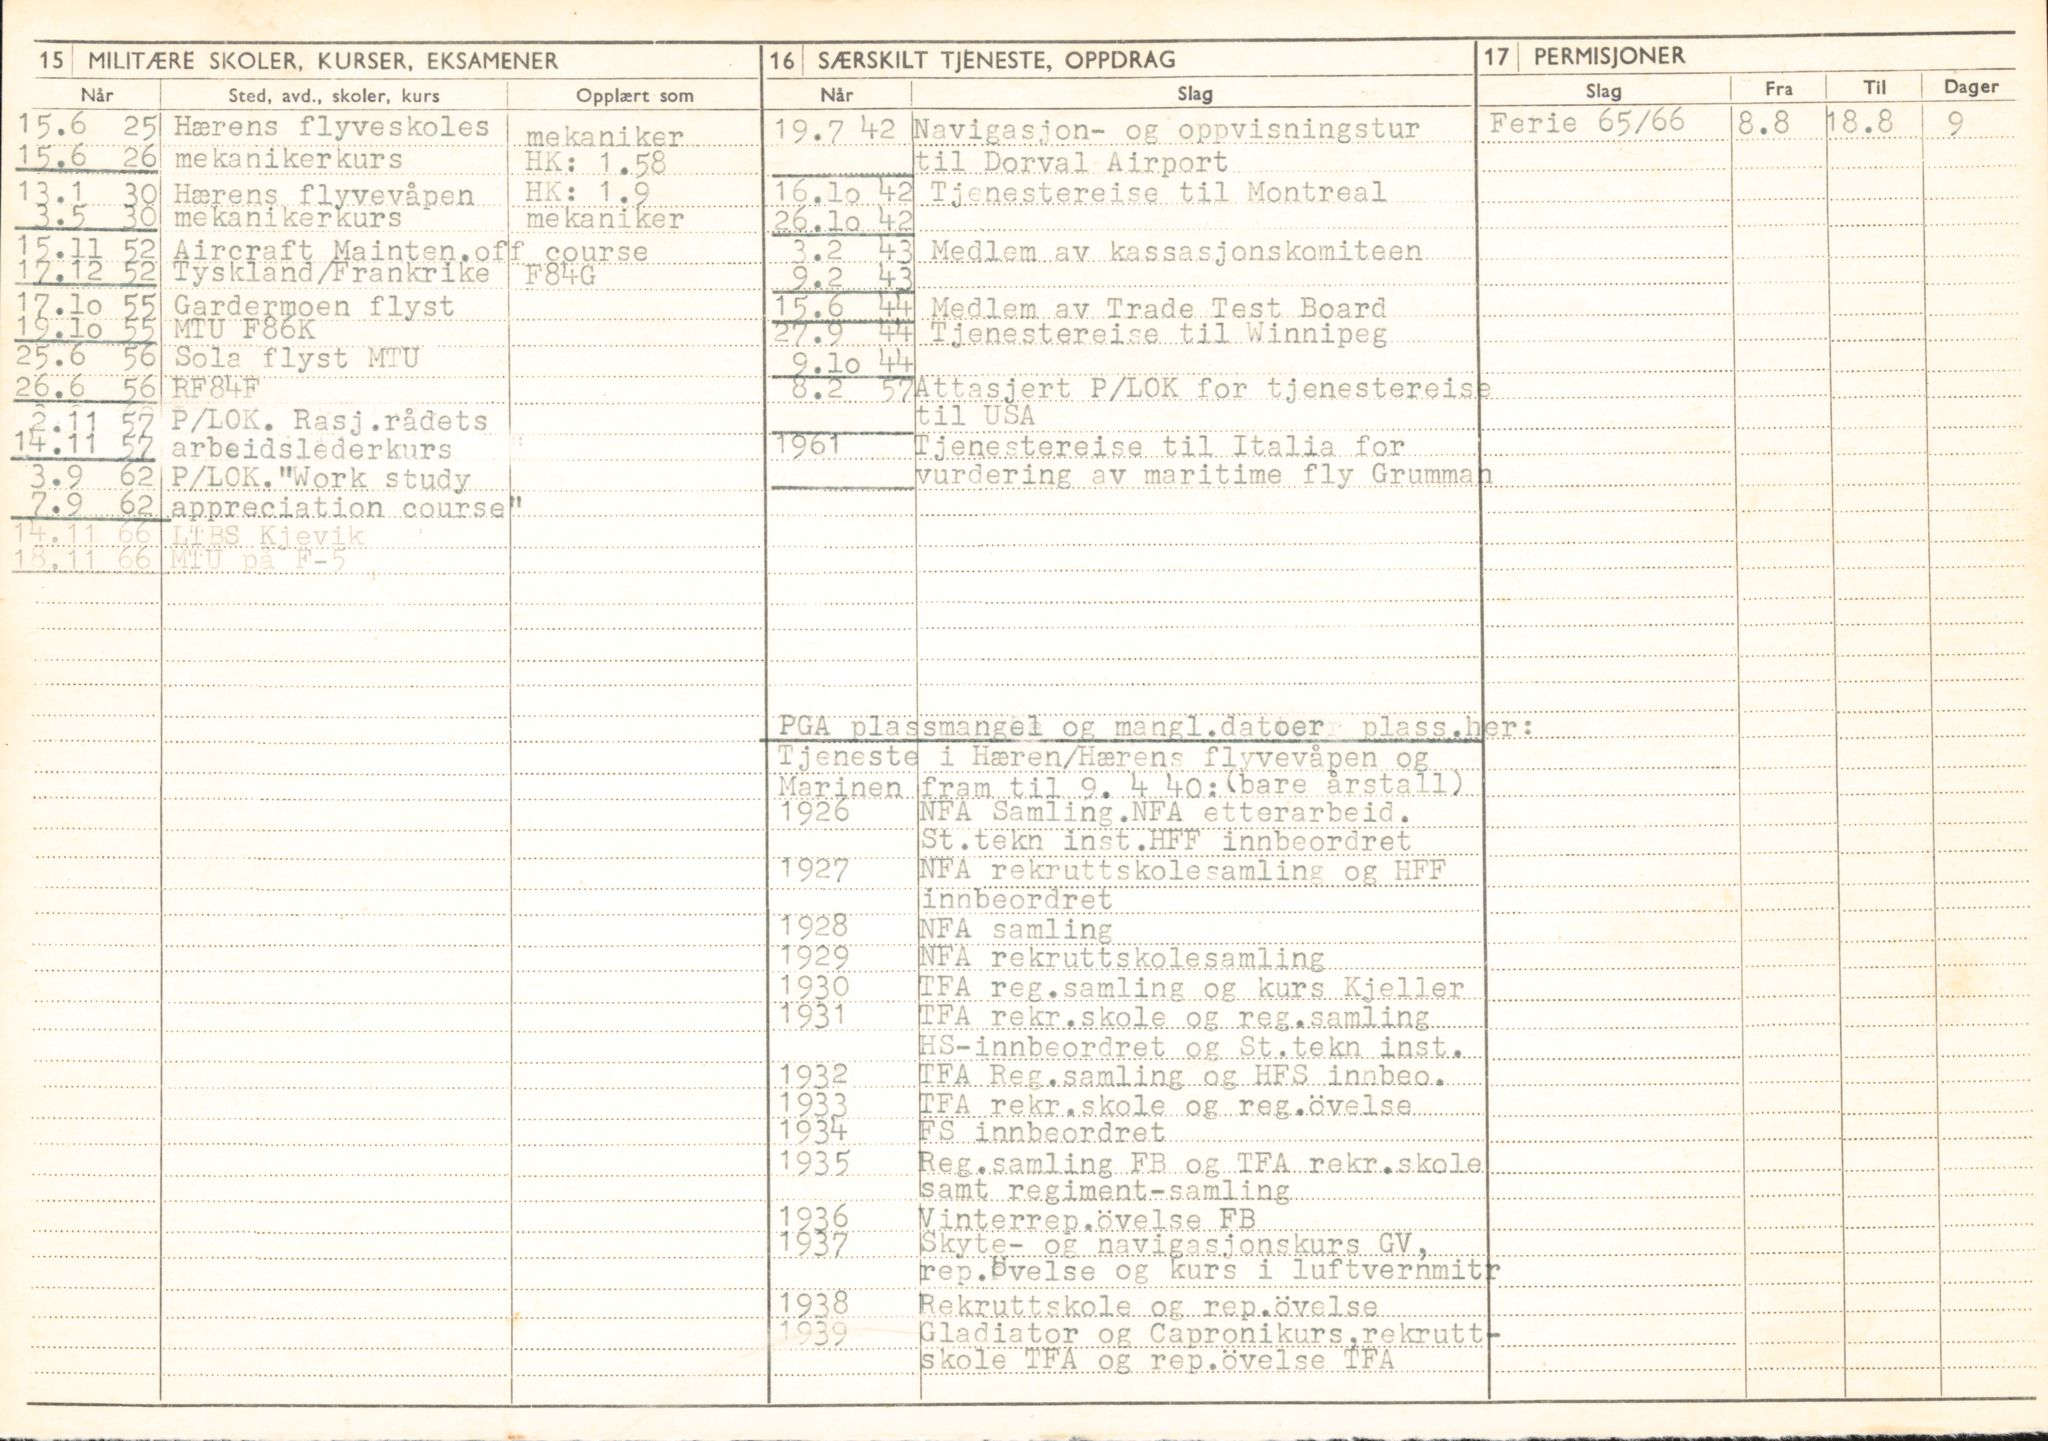 15 MILITÆRE SKOLER, KURSER, EKSAMENER
Når Sted, avd., skoler, kurs Opplært som
15.6 25 Hærens flyveskoles mekaniker
15.6 26 mekanikerkurs HK: 1.58
13.1 30 Hærens flyvevåpen HK: 1.9
3.5 30 mekanikerkurs mekaniker
15.11 52 Aircraft Mainten.off course
17.12 52 Tyskland/Frankrike F84G
17.lo 55 Gardermoen flyst
19.lo 55 MTU F86K
25.6 56 Sola flyst MTU
26.6 56 RF84F
2.11 57 P/LOK. Rasj.rådets
14.11 57 arbeidslederkurs
3.9 62 P/LOK."Work study
7.9 62 appreciation course"
14.11 66 LTBS Kjevik
18.11 66 MTU på F-5
16 SÆRSKILT TJENESTE, OPPDRAG
Når Slag
19.7 42 Navigasjon- og oppvisningstur
til Dorval Airport
16.lo 42 Tjenestereise til Montreal
26.lo 42
3.2 43 Medlem av kassasjonskomiteen
9.2 43
15.6 44 Medlem av Trade Test Board
27.9 44 Tjenestereise til Winnipeg
9.lo 44
8.2 57 Attasjert P/LOK for tjenestereise
til USA
1961 Tjenestereise til Italia for
vurdering av maritime fly Grumman
PGA plassmangel og mangl.datoer plass.her:
Tjeneste i Hæren/Hærens flyvevåpen og
Marinen fram til 9. 4 40:(bare årstall)
1926 NFA Samling.NFA etterarbeid.
St.tekn inst.HFF innbeordret
1927 NFA rekruttskolesamling og HFF
innbeordret
1928 NFA samling
1929 NFA rekruttskolesamling
1930 TFA reg.samling og kurs Kjeller
1931 TFA rekr.skole og reg.samling
HS-innbeordret og St.tekn inst.
1932 TFA Reg.samling og HFS innbeo.
1933 TFA rekr.skole og reg.övelse
1934 FS innbeordret
1935 Reg.samling FB og TFA rekr.skole
samt regiment-samling
1936 Vinterrep.övelse FB
1937 Skyte- og navigasjonskurs GV,
rep.övelse og kurs i luftvernmitr
1938 Rekruttskole og rep.övelse
1939 Gladiator og Capronikurs,rekrutt-
skole TFA og rep.övelse TFA
17 PERMISJONER
Slag Fra Til Dager
Ferie 65/66 8.8 18.8 9